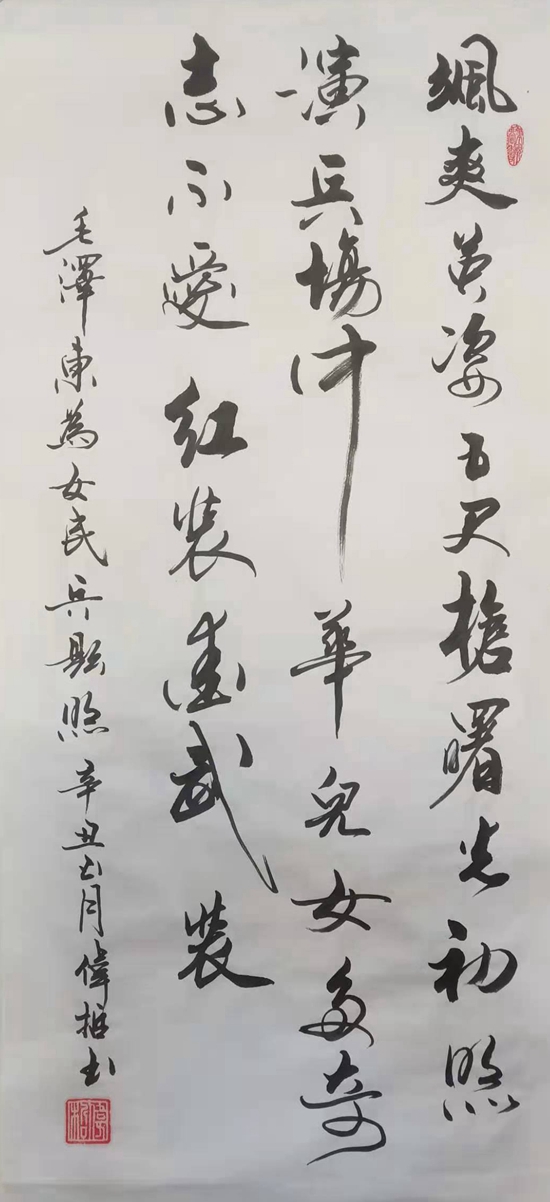 颯爽英姿五尺槍曙光初照
演兵場中華兒女多奇
志不愛紅裝愛武裝
毛澤東為女民兵題照辛丑月偉哲書